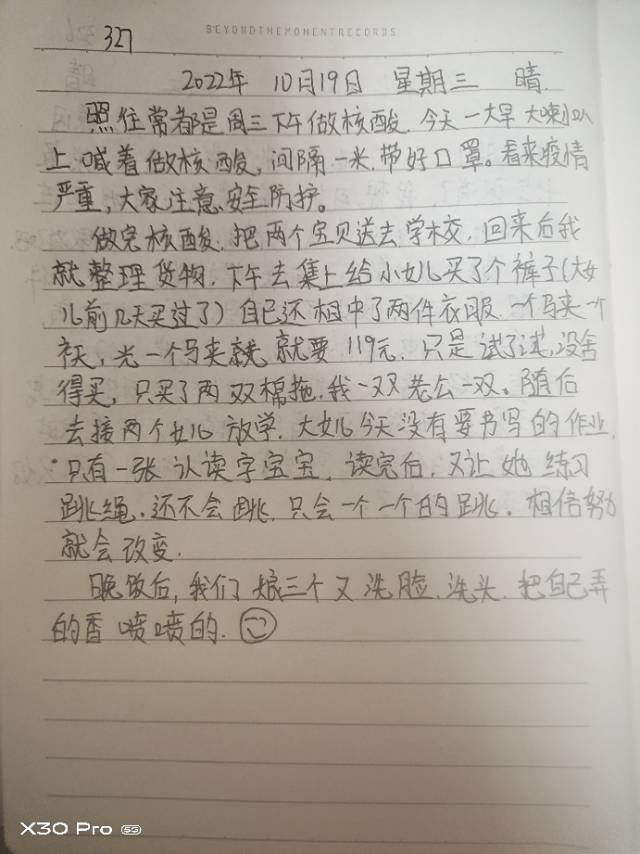 BEYONDTHEMOMENTRECORDS
327
2022年 10月19日 星期三 晴.
照往常都是周三下午做核酸.今天一大早大喇叭
上喊着做核酸,间隔一米.带好口罩。看来疫情
严重,大家注意安全防护。
做完核酸.把两个宝贝送去学校.回来后我
就整理货物.下午去集上给小女儿买了个裤子(大女
儿前几天买过了)自己还相中了两件衣服.一个马夹一个
,光一个马夹就就要119元.只是试了试,没舍
得买,只买了两双棉拖.我一双老公一双。随后
去接两个女儿放学.大女儿今天没有要书写的作业.
只有一张认读字宝宝.读完后,又让她练习
跳绳.还不会跳.只会一个一个的跳.相信努力
就会改变.
晚饭后,我们娘三个又洗脸.洗头.把自己弄
的香喷喷的.
X30 Pro 5G